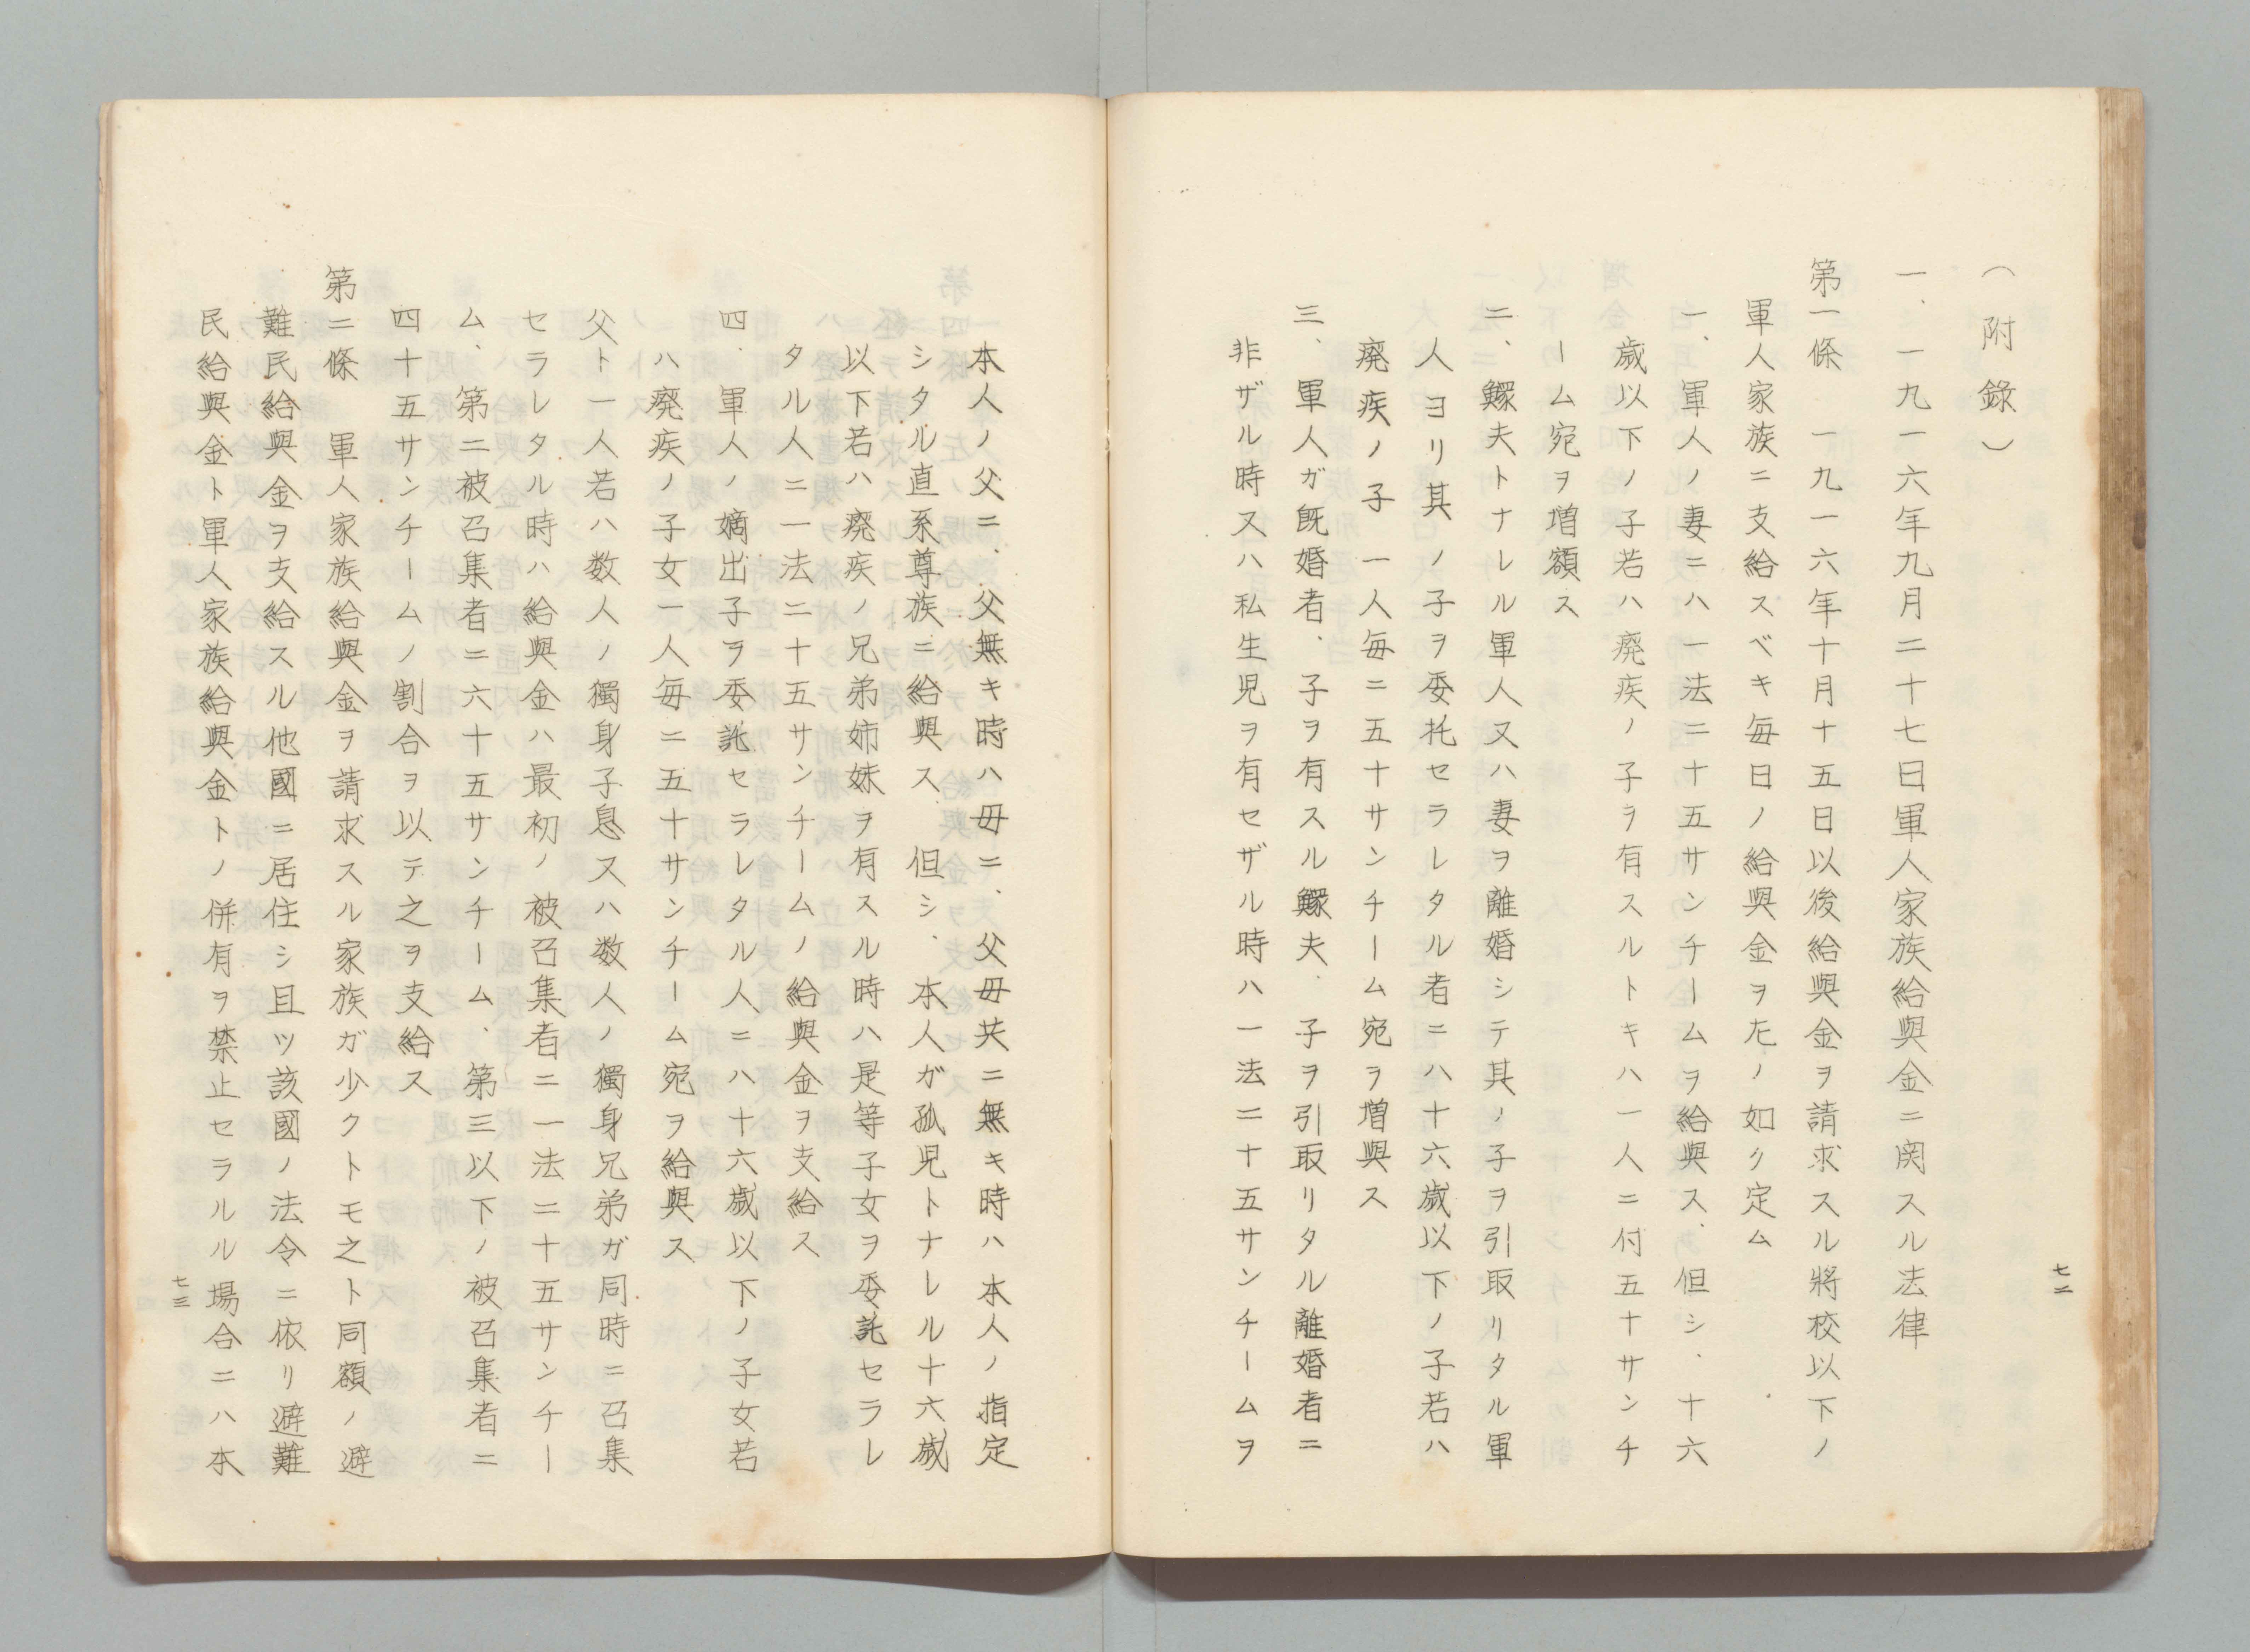 (附錄)
一、一九一六年九月二十七日軍人家族給與金ニ関スル法律
第一條　一九一六年十月十五日以後給與金ヲ請求スル將校以下ノ
軍人家族ニ支給スベキ毎日ノ給與金ヲ左ノ如ク定ム
一、軍人ノ妻ニハ一法二十五サンチームヲ給與ス、但シ、十六
歳以下ノ子若ハ廃疾ノ子ヲ有スルトキハ一人ニ付五十サンチ
ーム宛ヲ増額ス
二、鰥夫トナレル軍人又ハ妻ヲ離婚シテ其ノ子ヲ引取リタル軍
人ヨリ其ノ子ヲ委托セラレタル者ニハ十六歳以下ノ子若ハ
廃疾ノ子一人毎ニ五十サンチーム宛ヲ増與ス
三、軍人ガ既婚者、子ヲ有スル鰥夫、子ヲ引取リタル離婚者ニ
非ザル時又ハ私生児ヲ有セザル時ハ一法二十五サンチームヲ
七二
本人ノ父ニ、父無キ時ハ母ニ、父母共ニ無キ時ハ本人ノ指定
シタル直系尊族ニ給與ス、但シ、本人ガ孤児トナレル十六歳
以下若ハ癈疾ノ兄弟姉妹ヲ有スル時ハ是等子女ヲ委託セラレ
タル人ニ一法二十五サンチームノ給與金ヲ支給ス
四、軍人ノ嫡出子ヲ委託セラレタル人ニハ十六歳以下ノ子女若
ハ癈疾ノ子女一人毎ニ五十サンチーム宛ヲ給與ス
父ト一人若ハ数人ノ獨身子息又ハ数人ノ獨身兄弟ガ同時ニ召集
セラレタル時ハ給與金ハ最初ノ被召集者ニ一法二十五サンチー
ム、第二被召集者ニ六十五サンチーム、第三以下ノ被召集者ニ
四十五サンチームノ割合ヲ以テ之ヲ支給ス
第二條　軍人家族給與金ヲ請求スル家族ガ少クトモ之ト同額ノ避
難民給與金ヲ支給スル他國ニ居住シ且ツ該國ノ法令ニ依リ避難
民給與金ト軍人家族給與金トノ併有ヲ禁止セラルル場合ニハ本
七三